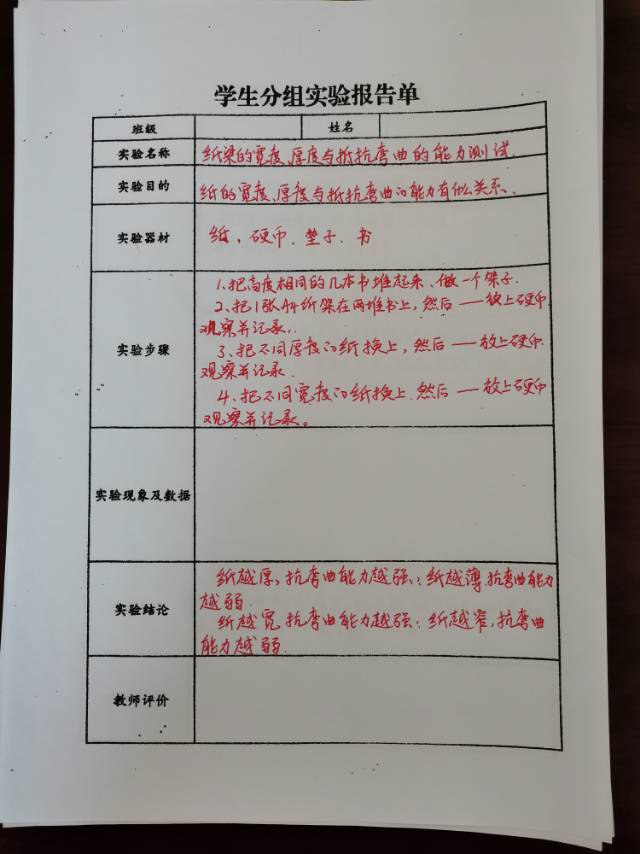 学生分组实验报告单
班级 姓名
实验名称 纸梁的宽度、厚度与抵抗弯曲的能力测试
实验目的 纸的宽度、厚度与抵抗弯曲的能力有什么关系、
实验器材 纸、硬币、垫子、书
1、把高度相同的几本书堆起来、做一个架子.
2、把1张A4纸架在两堆书上，然后一一放上硬币
观察并记录.
实验步骤
3、把不同厚度的纸换上，然后一一放上硬币
观察并记录
4、把不同宽度的纸换上.然后一一放上硬币
观察并记录。
实验现象及数据
纸越厚，抗弯曲能力越强；纸越薄.抗弯曲能力
越弱.
实验结论
纸越宽.抗弯曲能力越强；纸越窄，抗弯曲
能力越弱.
教师评价